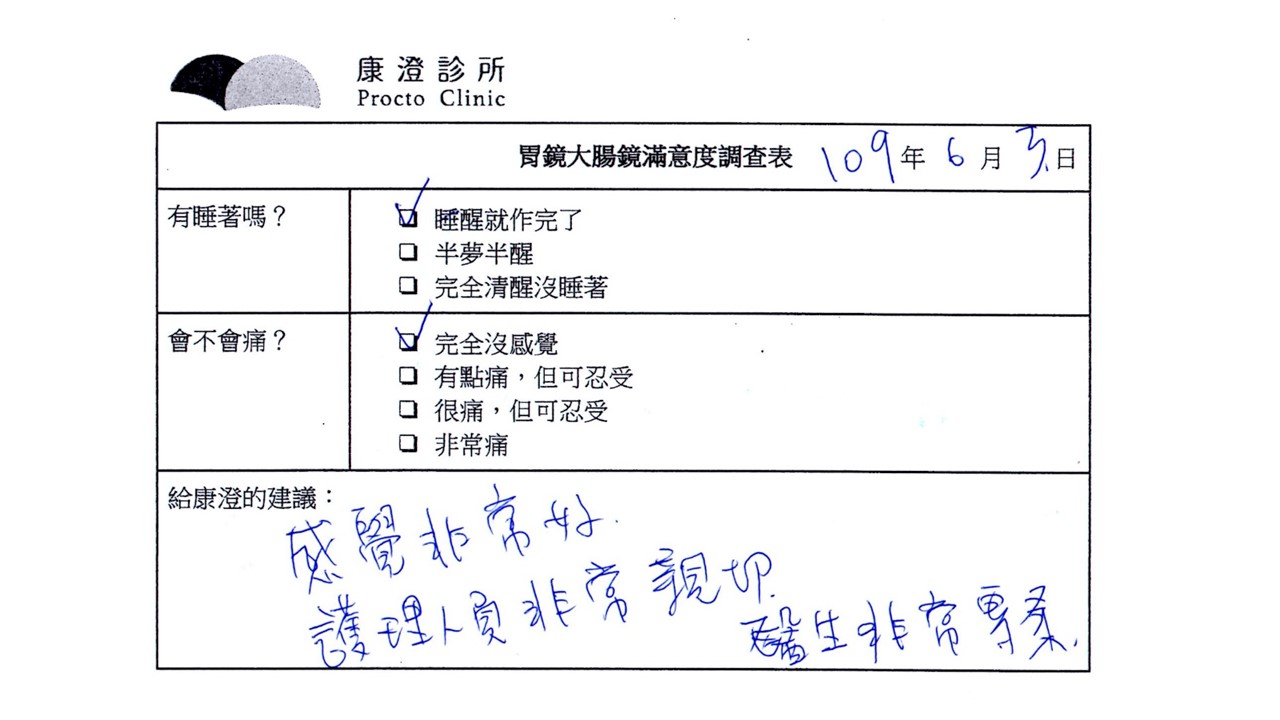 康澄診所
Procto Clinic
胃鏡大腸鏡滿意度調查表 109年6月 日
有睡著嗎？
睡醒就作完了
半夢半醒
完全清醒沒睡著
會不會痛？
完全沒感覺
有點痛，但可忍受
很痛，但可忍受
非常痛
給康澄的建議：
感覺非常好.
護理人員非常親切.
醫生非常專業.